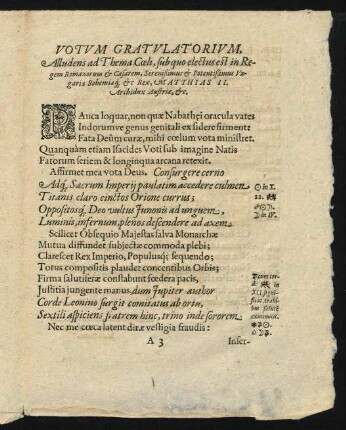 VOTVM GRATVLATORIVM,
Alludens ad Thema Cœli, sub quo electus est in Re-
gem Romanorum & Cæsarem, Serenissimus & Potentissimus Vn-
gariæ Bohemiæq; &c Rex, MATTHIAS II.
Archidux Austriæ, &c.
PAuca loquar, non quæ Nabathęi oracula vates
Indorumve genus genitali ex sidere firment:
Fata Deûm curæ, mihi cœlum vota ministret.
Quanquàm etiam Isacides Voti sub imagine Natis
Fatorum seriem & longinqua arcana retexit.
Affirmet mea vota Deus. Consurgere cerno
Adq; Sacrum Imperij paulatim accedere culmen
☉ in X.
Titanis claro cinctos Orione currus;
22.
Oppositosq; Deo vultus Junonis ad unguem
☍☉☽.
Luminis, infernum, plenos descendere ad axem
☽ in IV.
Scilicet Obsequio Majestas salva Monarchæ
Mutua diffundet subjectæ commoda plebi;
Clarescet Rex Imperio, Populusq; sequendo;
Totus compositis plaudet concentibus Orbis;
Firma salutiferæ constabunt fœdera pacis,
Justitia jungente manus, dum Jupiter author
Corde Leonino surgit comitatus ab ortu,
Sextili aspiciens fratrem hinc, trino inde sororem
Nec me cœca latent diræ vestigia fraudis:
A 3
Inser-